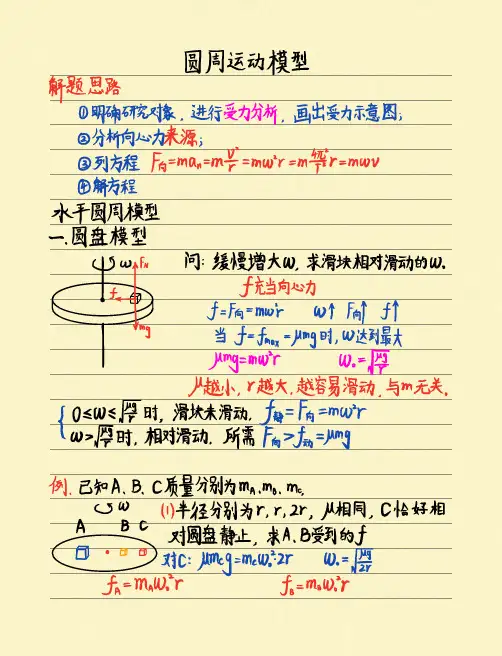 圆周运动模型
解题思路
①明确研究对象，进行受力分析，画出受力示意图；
②分析向心力来源；
③列方程 F向=maₙ=mv²/r=mω²r=m4π²/T²r=mωv
④解方程
水平圆周模型
一.圆盘模型
ω FN
f
mg
问：缓慢增大ω，求滑块相对滑动的ω。
f充当向心力
f=F向=mω²r ω↑ F向↑ f↑
当 f=fmax=μmg时，ω达到最大
μmg=mω²r ω₀=√(μg/r)
μ越小，r越大，越容易滑动，与m无关。
0≤ω≤√(μg/r)时，滑块未滑动，f静=F向=mω²r
ω>√(μg/r)时，相对滑动，所需F向>f动=μmg
例.已知A、B、C质量分别为mA、mB、mC，
ω
A B C
(1)半径分别为r，r，2r，μ相同，C恰好相
对圆盘静止，求A、B受到的f
对C：μmCg=mCω₀²·2r ω₀=√(μg/2r)
fA=mAω₀²r fB=mBω₀²r